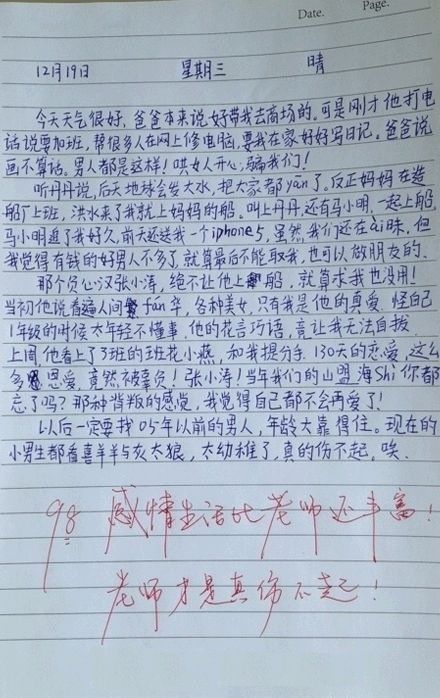 Date.
Page.
12月19日 星期三 晴
今天天气很好，爸爸本来说好带我去商场的。可是刚才他打电
话说要加班，帮很多人在网上修电脑，要我在家好好写日记。爸爸说
画不算话。男人都是这样！哄女人开心，骗我们！
听丹丹说，后天地球会发大水，把大家都yān了。反正妈妈在造
船厂上班，洪水来了我就上妈妈的船。叫上丹丹，还有马小明，一起上船，
马小明追了我好久，前天还送我一个iphone5，虽然我们还在ai昧，但
我觉得有钱的好男人不多了，就算最后不能取我，也可以做朋友的。
那个负心汉张小涛，绝不让他上船，就算求我也没用！
当初他说看遍人间fán华，各种美女，只有我是他的真爱，怪自己
1年级的时候太年轻不懂事，他的花言巧语，竟让我无法自拔
上周他看上了3班的班花小燕，和我提分手，130天的恋爱，这么
多恩爱，竟然被辜负！张小涛！当年我们的山盟海Shi你都
忘了吗？那种背叛的感觉，我觉得自己都不会再爱了！
以后一定要找05年以前的男人，年龄大靠得住。现在的
小男生都看喜羊羊与灰太狼，太幼稚了，真的伤不起，唉.
98 感情生活比老师还丰富！
老师才是真伤不起！